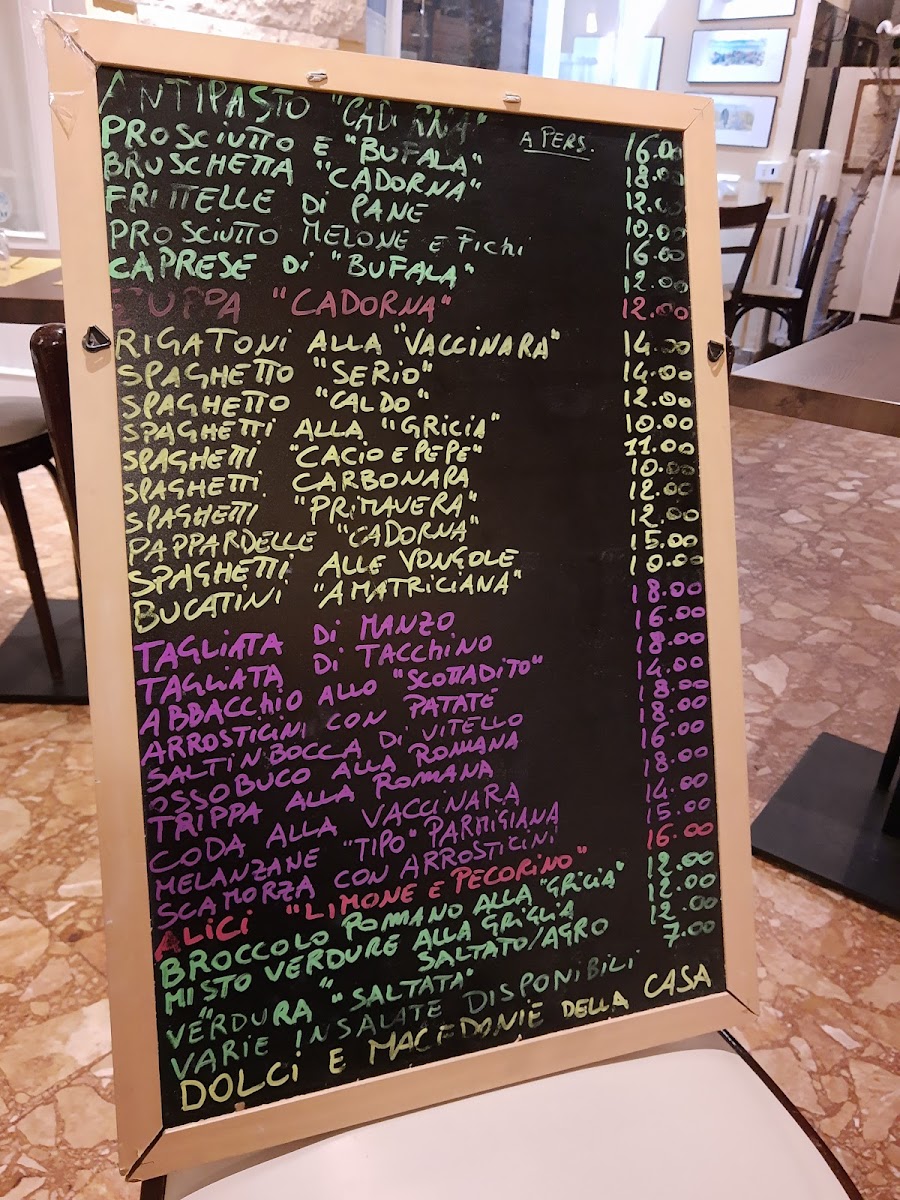 ANTIPASTO "CADORNA" A PERS. 16.00
PROSCIUTTO E "BUFALA" 18.00
BRUSCHETTA "CADORNA" 12.00
FRITTELLE Di PANE 10.00
PROSCIUTTO MELONE e FICHI 16.00
CAPRESE Di "BUFALA" 12.00
ZUPPA "CADORNA" 12.00
RIGATONI ALLA "VACCINARA" 14.00
SPAGHETTO "SERIO" 14.00
SPAGHETTO "CALDO" 12.00
SPAGHETTI ALLA "GRICIA" 10.00
SPAGHETTI "CACIO E PEPE" 11.00
SPAGHETTI CARBONARA 10.00
SPAGHETTI "PRIMAVERA" 12.00
PAPPARDELLE "CADORNA" 12.00
SPAGHETTI ALLE VONGOLE 15.00
BUCATINI "AMATRICIANA" 10.00
TAGLIATA Di MANZO 18.00
TAGLIATA Di TACCHINO 16.00
ABBACCHIO ALLO "SCOTTADITO" 18.00
ARROSTICINI CON PATATE 14.00
SALTINBOCCA Di VITELLO 18.00
OSSOBUCO ALLA ROMANA 18.00
TRIPPA ALLA ROMANA 16.00
CODA ALLA VACCINARA 18.00
MELANZANE "TIPO" PARMIGIANA 14.00
SCAMORZA CON ARROSTICINI 15.00
ALICI "LIMONE E PECORINO" 16.00
BROCCOLO ROMANO ALLA "GRICIA" 12.00
MISTO VERDURE ALLA GRIGLIA 12.00
" " SALTATO/AGRO 12.00
VERDURA "SALTATA" 7.00
VARIE INSALATE DISPONIBILI
DOLCI E MACEDONIE DELLA CASA